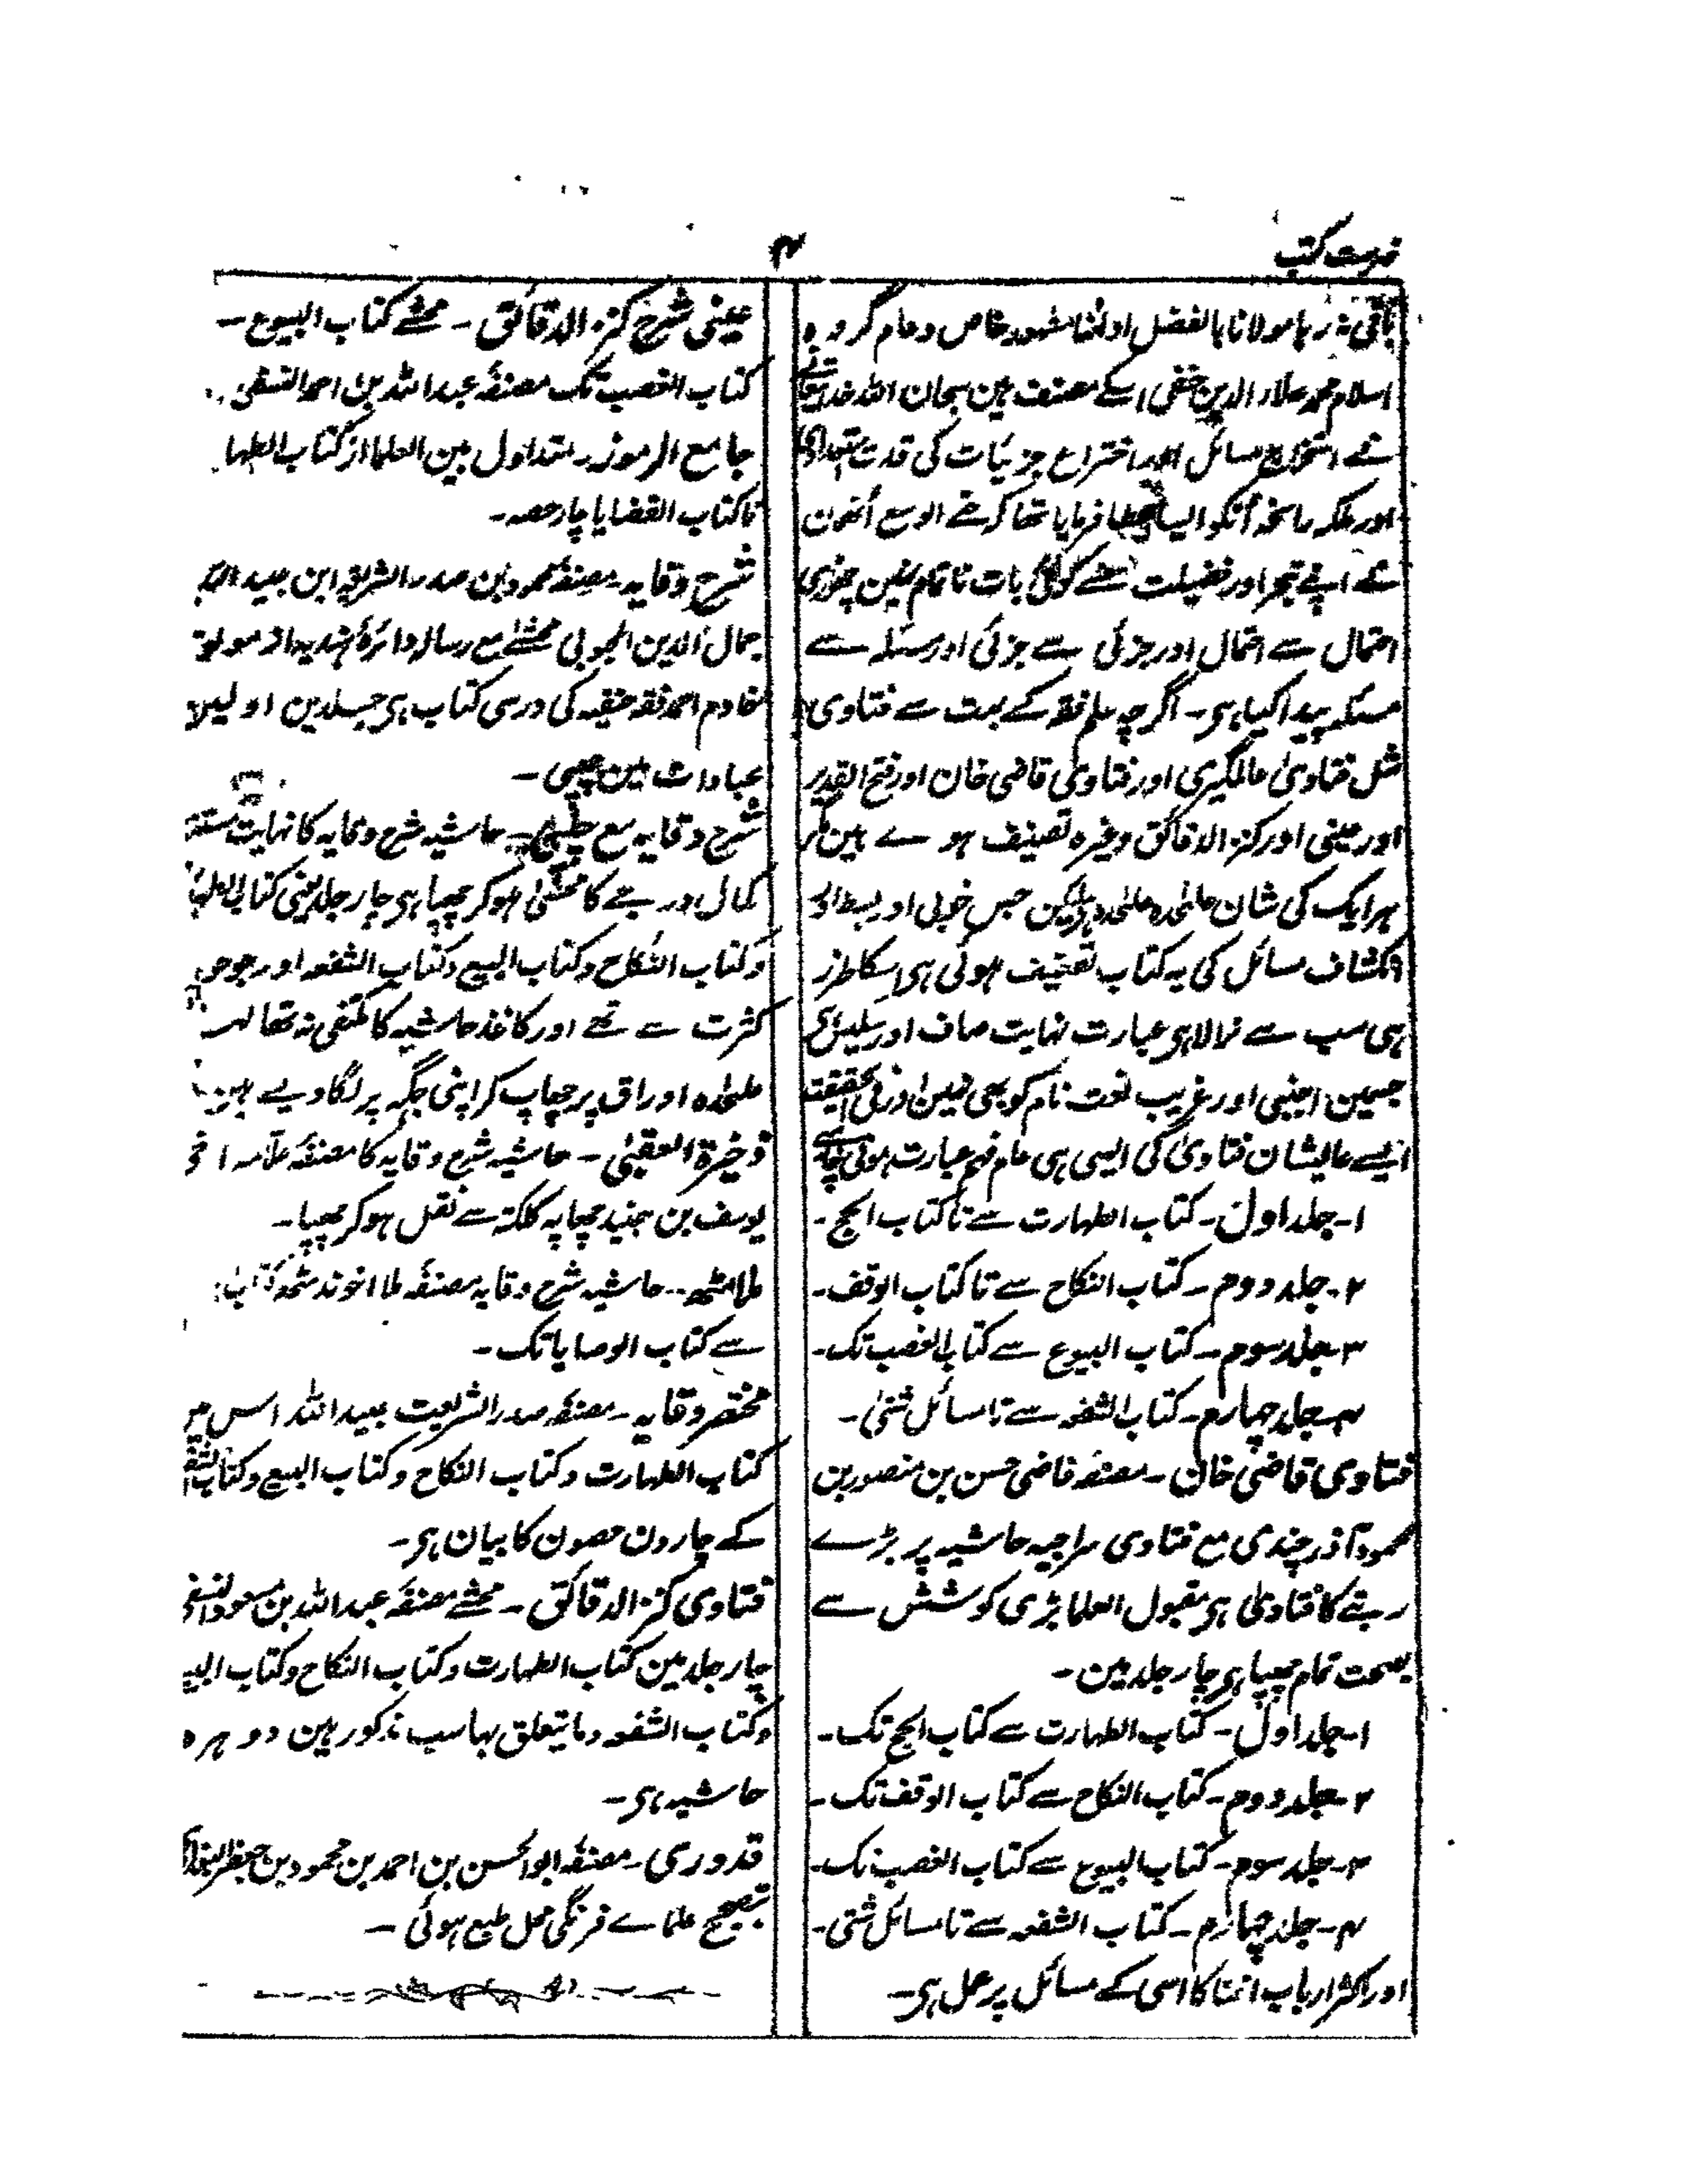 فہرست کتب
۴
باقی نہ رہا مولانا بالفضل اولٰنا مشہور خاص و عام گروہ
اسلام محمد علاء الدین حنفی اسکے مصنف ہین سبحان اللہ خداے تعالے
نے استخراج مسائل اور اختراع جزئیات کی قدرت
اور ملکہ راسخہ اُنکو ایسا عطا فرمایا تھا کہ حتے الوسع اُنھون
نے اپنے تبحر اور فضیلت سے کوئی بات ناتمام نہین چھوڑی
احتمال سے احتمال اور جزئی سے جزئی اور مسئلہ سے
مسئلہ پیدا کیا ہی۔ اگرچہ علم فقہ کے بہت سے فتاوی
مثل فتاوی عالمگیری اور فتاوی قاضی خان اور فتح القدیر
اور عینی اور کنز الدقائق وغیرہ تصنیف ہوے ہین مگر
ہر ایک کی شان علحٰدہ علحٰدہ ہی لیکن جس خوبی اور بسط اور
انکشاف مسائل کی یہ کتاب تصنیف ہوئی ہی اسکا طرز
ہی سب سے نرالا ہی عبارت نہایت صاف اور سلیس ہی
جسمین اجنبی اور غریب لغت نام کو بھی نہین اور فی الحقیقت
ایسے عالیشان فتاوی کی ایسی ہی عام فہم عبارت ہونی چاہیے
۱۔ جلد اول۔ کتاب الطہارت سے تا کتاب الحج۔
۲۔ جلد دوم۔ کتاب النکاح سے تا کتاب الوقف۔
۳۔ جلد سوم۔ کتاب البیوع سے کتاب الغصب تک۔
۴۔ جلد چہارم۔ کتاب الشفعہ سے تا مسائل شتیٰ۔
فتاوی قاضی خان۔ مصنفہ قاضی حسن بن منصور بن
محمود آذرچندی مع فتاوی سراجیہ حاشیہ پر بڑے
رتبے کا فتاویٰ ہی مقبول العلما بڑی کوشش سے
بصحت تمام چھپا ہی چار جلد مین۔
۱۔ جلد اول۔ کتاب الطہارت سے کتاب الحج تک۔
۲۔ جلد دوم۔ کتاب النکاح سے کتاب الوقف تک۔
۳۔ جلد سوم۔ کتاب البیوع سے کتاب الغصب تک۔
۴۔ جلد چہارم۔ کتاب الشفعہ سے تا مسائل شتی۔
اور اکثر ارباب افتا کا اسی کے مسائل پر عمل ہی۔
عینی شرح کنز الدقائق۔ محشے کتاب البیوع۔
کتاب الغصب تک مصنفہ عبد اللہ بن احمد النسفی
جامع الرموز۔ متداول بین العلما از کتاب الطہا
تا کتاب القضایا چار حصہ۔
شرح وقایہ۔ مصنفہ محمود بن صدر الشریعہ ابن عبید اللہ
جمال الدین المحبوبی محشے مع رسالہ دائرۂ ہندیہ از مولوی
خادم احمد فقہ حنفیہ کی درسی کتاب ہی جلدین اولین
عبادات مین چھپی۔
شرح وقایہ مع چلپی۔ حاشیہ شرح وقایہ کا نہایت مستند
کمال درجے کا محشیٰ ہوکر چھپا ہی چار جلد یعنی کتاب الطہا
وکتاب النکاح وکتاب البیع وکتاب الشفعہ اور جو
کثرت سے تھے اور کاغذ حاشیہ کا مکتفی نہ تھا
علحٰدہ اوراق پر چھاپ کر اپنی جگہ پر لگا دیے ہین
ذخیرۃ العقبیٰ۔ حاشیہ شرح وقایہ کا مصنفہ علامہ اخی
یوسف بن جنید چھاپہ کلکتہ سے نقل ہوکر چھپا۔
حاشیہ شرح وقایہ مصنفہ ملا اخوند
سے کتاب الوصایا تک۔
مختصر وقایہ۔ مصنفہ صدر الشریعت عبید اللہ اس مین
کتاب الطہارت وکتاب النکاح وکتاب البیع وکتاب الشفعہ
کے چارون حصون کا بیان ہی۔
فتاوی کنز الدقائق۔ محشے مصنفہ عبد اللہ بن مسعود النسفی
چار جلد مین کتاب الطہارت وکتاب النکاح وکتاب البیع
وکتاب الشفعہ وما یتعلق بہا سب مذکور ہین دوہرہ
حاشیہ ہی۔
قدوری۔ مصنفہ ابو الحسن بن احمد بن محمود بن جعفر البغدادی
بتصحیح علماے فرنگی محل طبع ہوئی۔